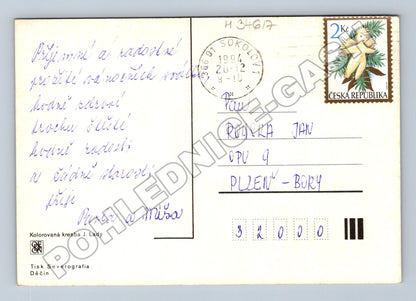 H 34617
356 01 SOKOLOV 1
1994
2 Kč
ČESKÁ REPUBLIKA
Příjemné a radostné
prožití vánočních svátků
hodně zdraví
trochu štěstí
hodně radosti
a žádné starosti
přeje
Pavla a Míša
Pan
JAN
OPV 9
PLZEŇ - BORY
3 2 0 0 0
Kolorovaná kresba J. Lady
Tisk Severografia
Děčín
POHLEDNICE-GASE